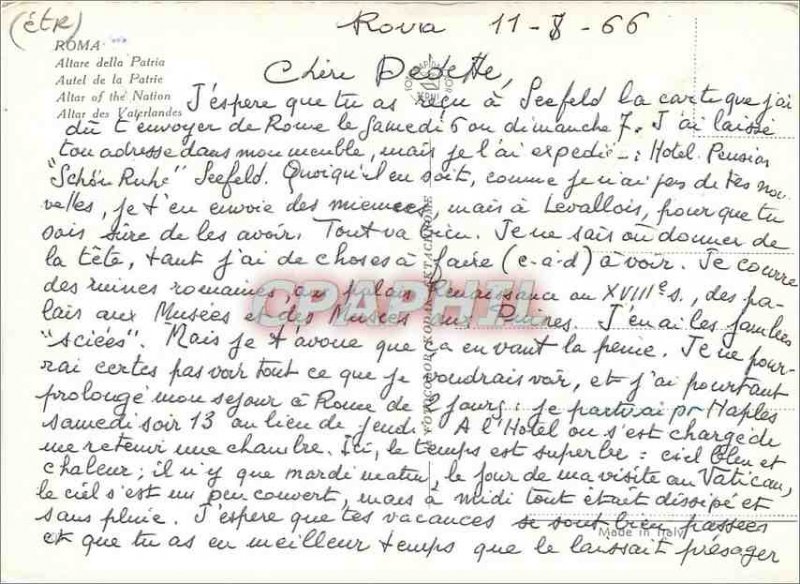 (étr)
Roma 11-8-66
ROMA
Altare della Patria
Autel de la Patrie
Altar of the Nation
Altar des Vaterlandes
Chère Dedette,
J'espere que tu as reçu à Seefeld la carte que j'ai
dû t'envoyer de Rome le Samedi 6 ou dimanche 7. J'ai laissé
ton adresse dans mon meuble, mais je l'ai expédié : Hotel Pension
"Schön Ruhe" Seefeld. Quoiqu'il en soit, comme je n'ai pas de tes nou-
velles, je t'en envoie des miennes, mais à Levallois, pour que tu
sois sûre de les avoir. Tout va bien. Je ne sais où donner de
la tête, tant j'ai de choses à faire (c-à-d) à voir. Je courre
des ruines romaines, au palais Renaissance ou XVIIIe s., des pa-
lais aux Musées et des Musées aux Ruines. J'en ai les jambes
"sciées". Mais je t'avoue que ça en vaut la peine. Je ne pour-
rai certes pas voir tout ce que je voudrais voir, et j'ai pourtant
prolongé mon séjour à Rome de 2 jours : je partirai pr Naples
samedi soir 13 au lieu de jeudi. A l'Hotel on s'est chargé de
me retenir une chambre. Ici, le temps est superbe : ciel bleu et
chaleur ; il n'y que mardi matin, le jour de ma visite au Vatican,
le ciel s'est un peu couvert, mais à midi tout était dissipé et
sans pluie. J'espere que tes vacances se sont bien passées
et que tu as eu meilleur temps que le laissait présager
Made in Italy
CPAPHIL